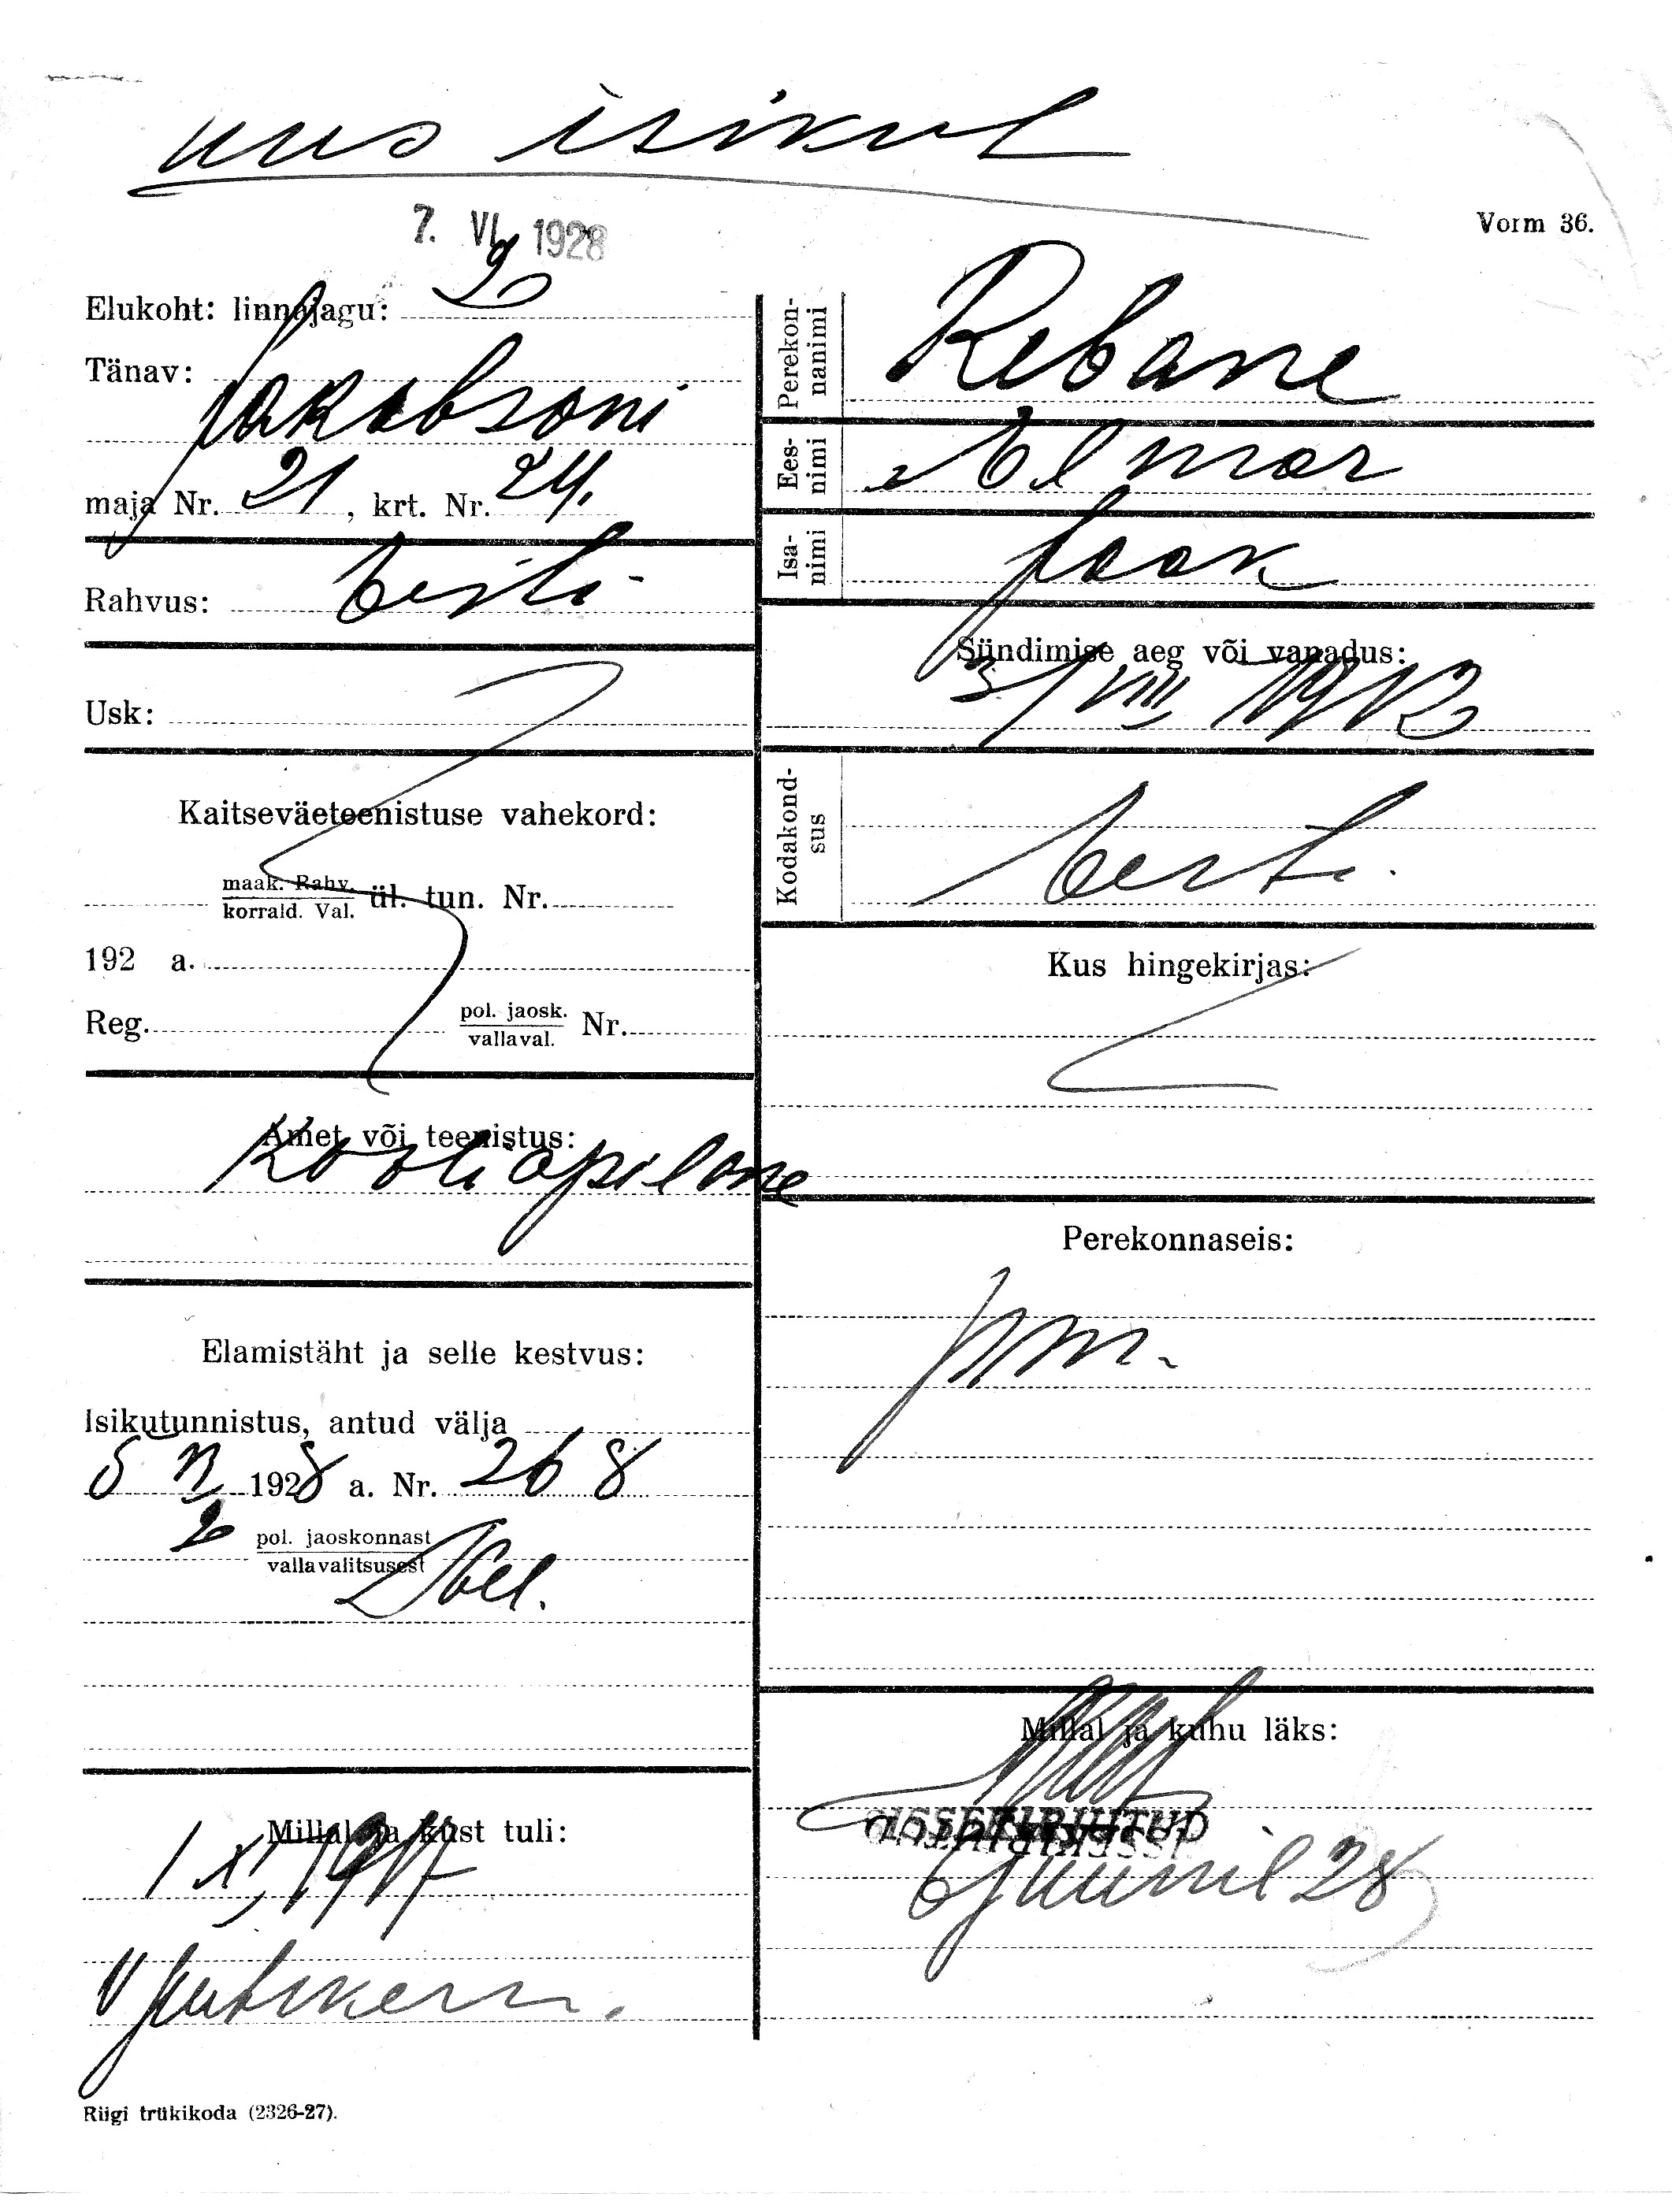 uus isikul
7. VI 1928
Vorm 36.
Elukoht: linnajagu: 2
Tänav:
Jakobsoni
maja Nr. 21, krt. Nr. 24.
Rahvus: Eesti
Usk:
Kaitseväeteenistuse vahekord:
maak. Rahv.
korrald. Val.
ül. tun. Nr.
192 a.
Reg.
pol. jaosk.
vallaval.
Nr.
Amet või teenistus:
Kooliõpilane
Elamistäht ja selle kestvus:
Isikutunnistus, antud välja
5 VI 1928 a. Nr. 268
2 pol. jaoskonnast
vallavalitsusest
Millal ja kust tuli:
1 XI 1917
Riigi trükikoda (2326-27).
Perekon-
nanimi
Rebane
Ees-
nimi
Elmar
Isa-
nimi
Jaak
Sündimise aeg või vanadus:
3/VIII 1912
Kodakond-
sus
Eesti.
Kus hingekirjas:
Perekonnaseis:
Millal ja kuhu läks:
SISSEKIRJUTUD
6 Juunil 28